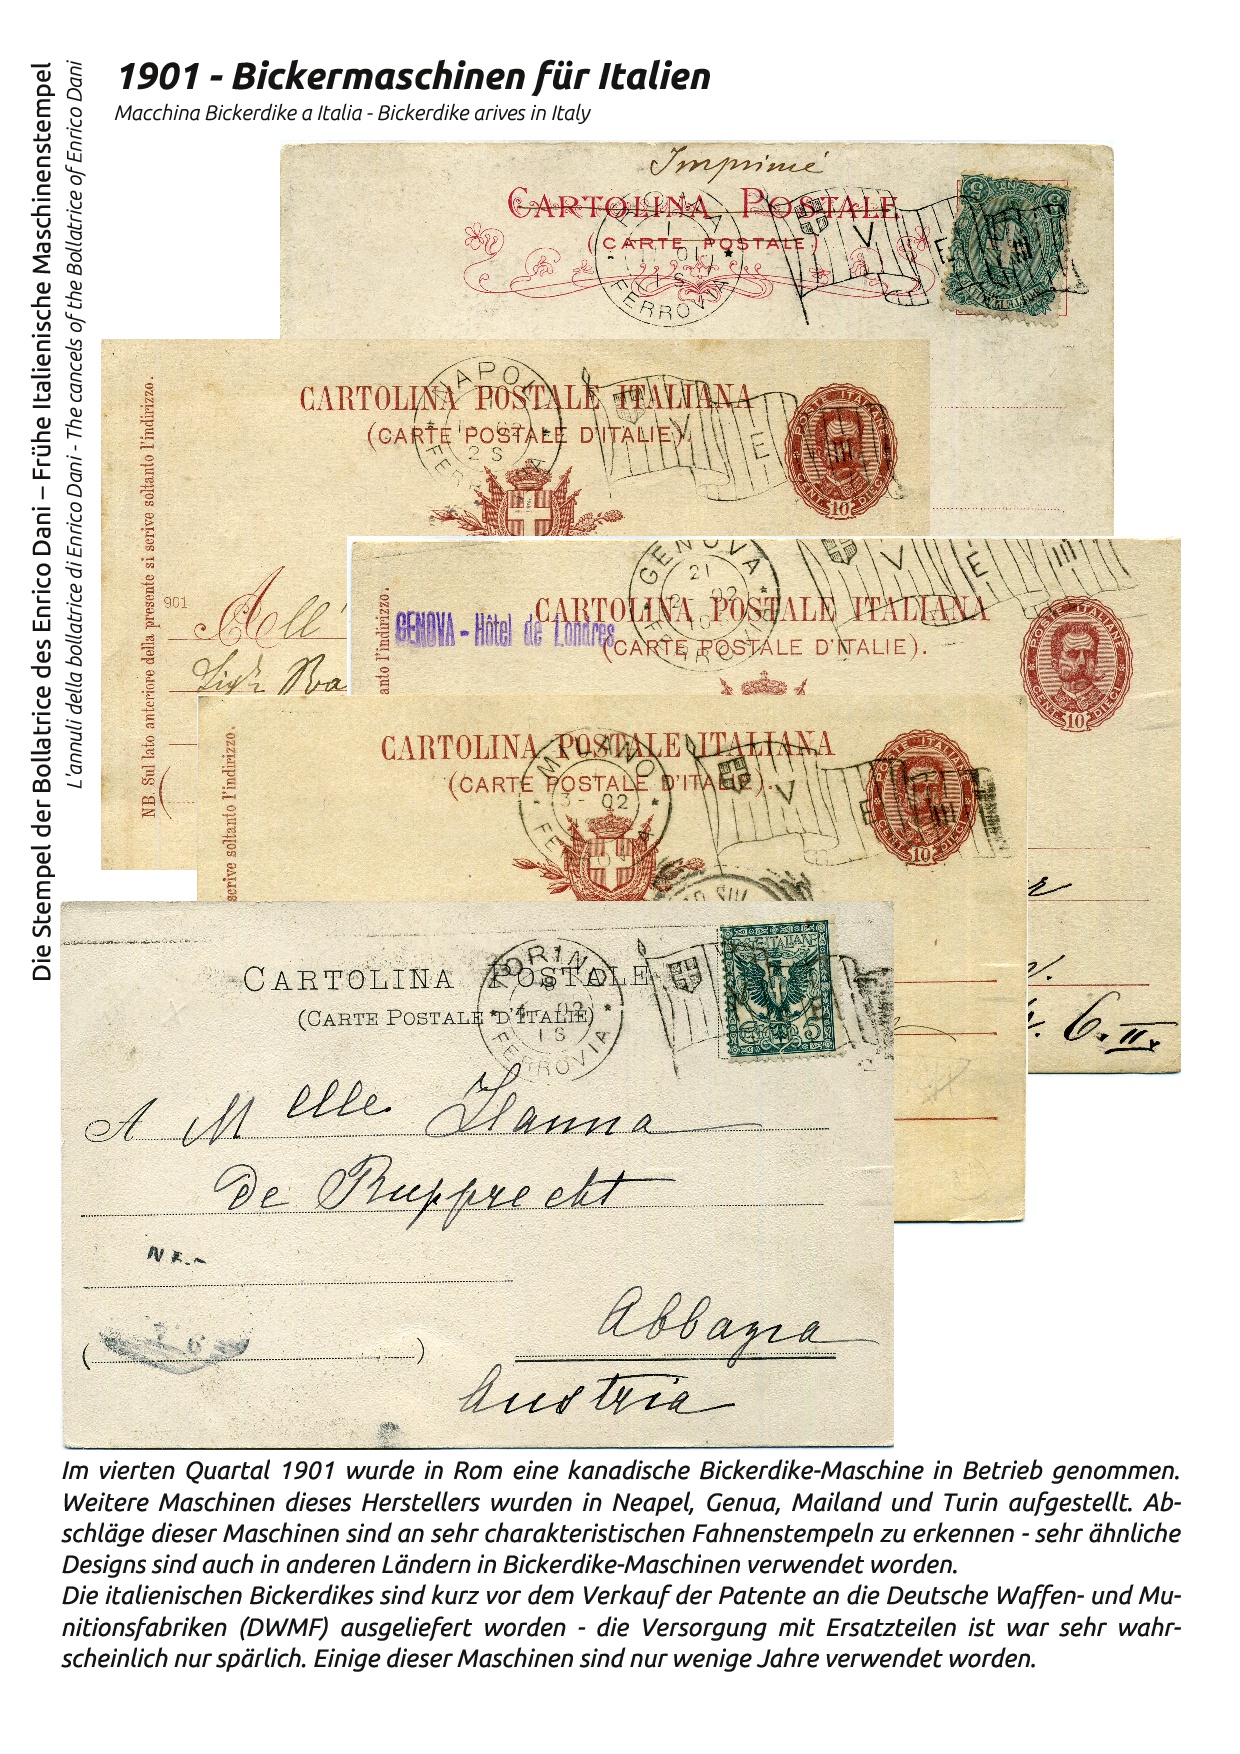 1901 - Bickermaschinen für Italien
Macchina Bickerdike a Italia - Bickerdike arives in Italy
Die Stempel der Bollatrice des Enrico Dani – Frühe Italienische Maschinenstempel
L'annuli della bollatrice di Enrico Dani - The cancels of the Bollatrice of Enrico Dani
Imprimé
CARTOLINA POSTALE
(CARTE POSTALE)
ROMA
FERROVIA
V E III
CARTOLINA POSTALE ITALIANA
(CARTE POSTALE D'ITALIE).
NAPOLI
2 S
V E III
POSTE ITALIANE
CENT. 10 DIECI
NB. Sul lato anteriore della presente si scrive soltanto l'indirizzo.
901
All'
GENOVA
21
V E III
CARTOLINA POSTALE ITALIANA
(CARTE POSTALE D'ITALIE).
GENOVA - Hôtel de Londres
anto l'indirizzo.
POSTE ITALIANE
CENT. 10 DIECI
CARTOLINA POSTALE ITALIANA
(CARTE POSTALE D'ITALIE).
MILANO
3- 02
V E III
POSTE ITALIANE
CENT. 10 DIECI
scrive soltanto l'indirizzo.
6. II.
CARTOLINA POSTALE
(CARTE POSTALE D'ITALIE)
TORINO
8
02
1S
FERROVIA
5
A Melle Hanna
De Rupprecht
Abbazia
Austria
Im vierten Quartal 1901 wurde in Rom eine kanadische Bickerdike-Maschine in Betrieb genommen.
Weitere Maschinen dieses Herstellers wurden in Neapel, Genua, Mailand und Turin aufgestellt. Ab-
schläge dieser Maschinen sind an sehr charakteristischen Fahnenstempeln zu erkennen - sehr ähnliche
Designs sind auch in anderen Ländern in Bickerdike-Maschinen verwendet worden.
Die italienischen Bickerdikes sind kurz vor dem Verkauf der Patente an die Deutsche Waffen- und Mu-
nitionsfabriken (DWMF) ausgeliefert worden - die Versorgung mit Ersatzteilen ist war sehr wahr-
scheinlich nur spärlich. Einige dieser Maschinen sind nur wenige Jahre verwendet worden.